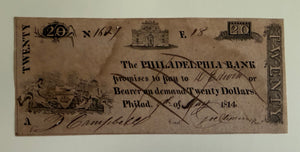 TWENTY
20
N 1627
E. 13
20
TWENTY
The PHILADELPHIA BANK
promises to pay to or
Bearer on demand Twenty Dollars.
Philad. May 1814
A
J Campbell